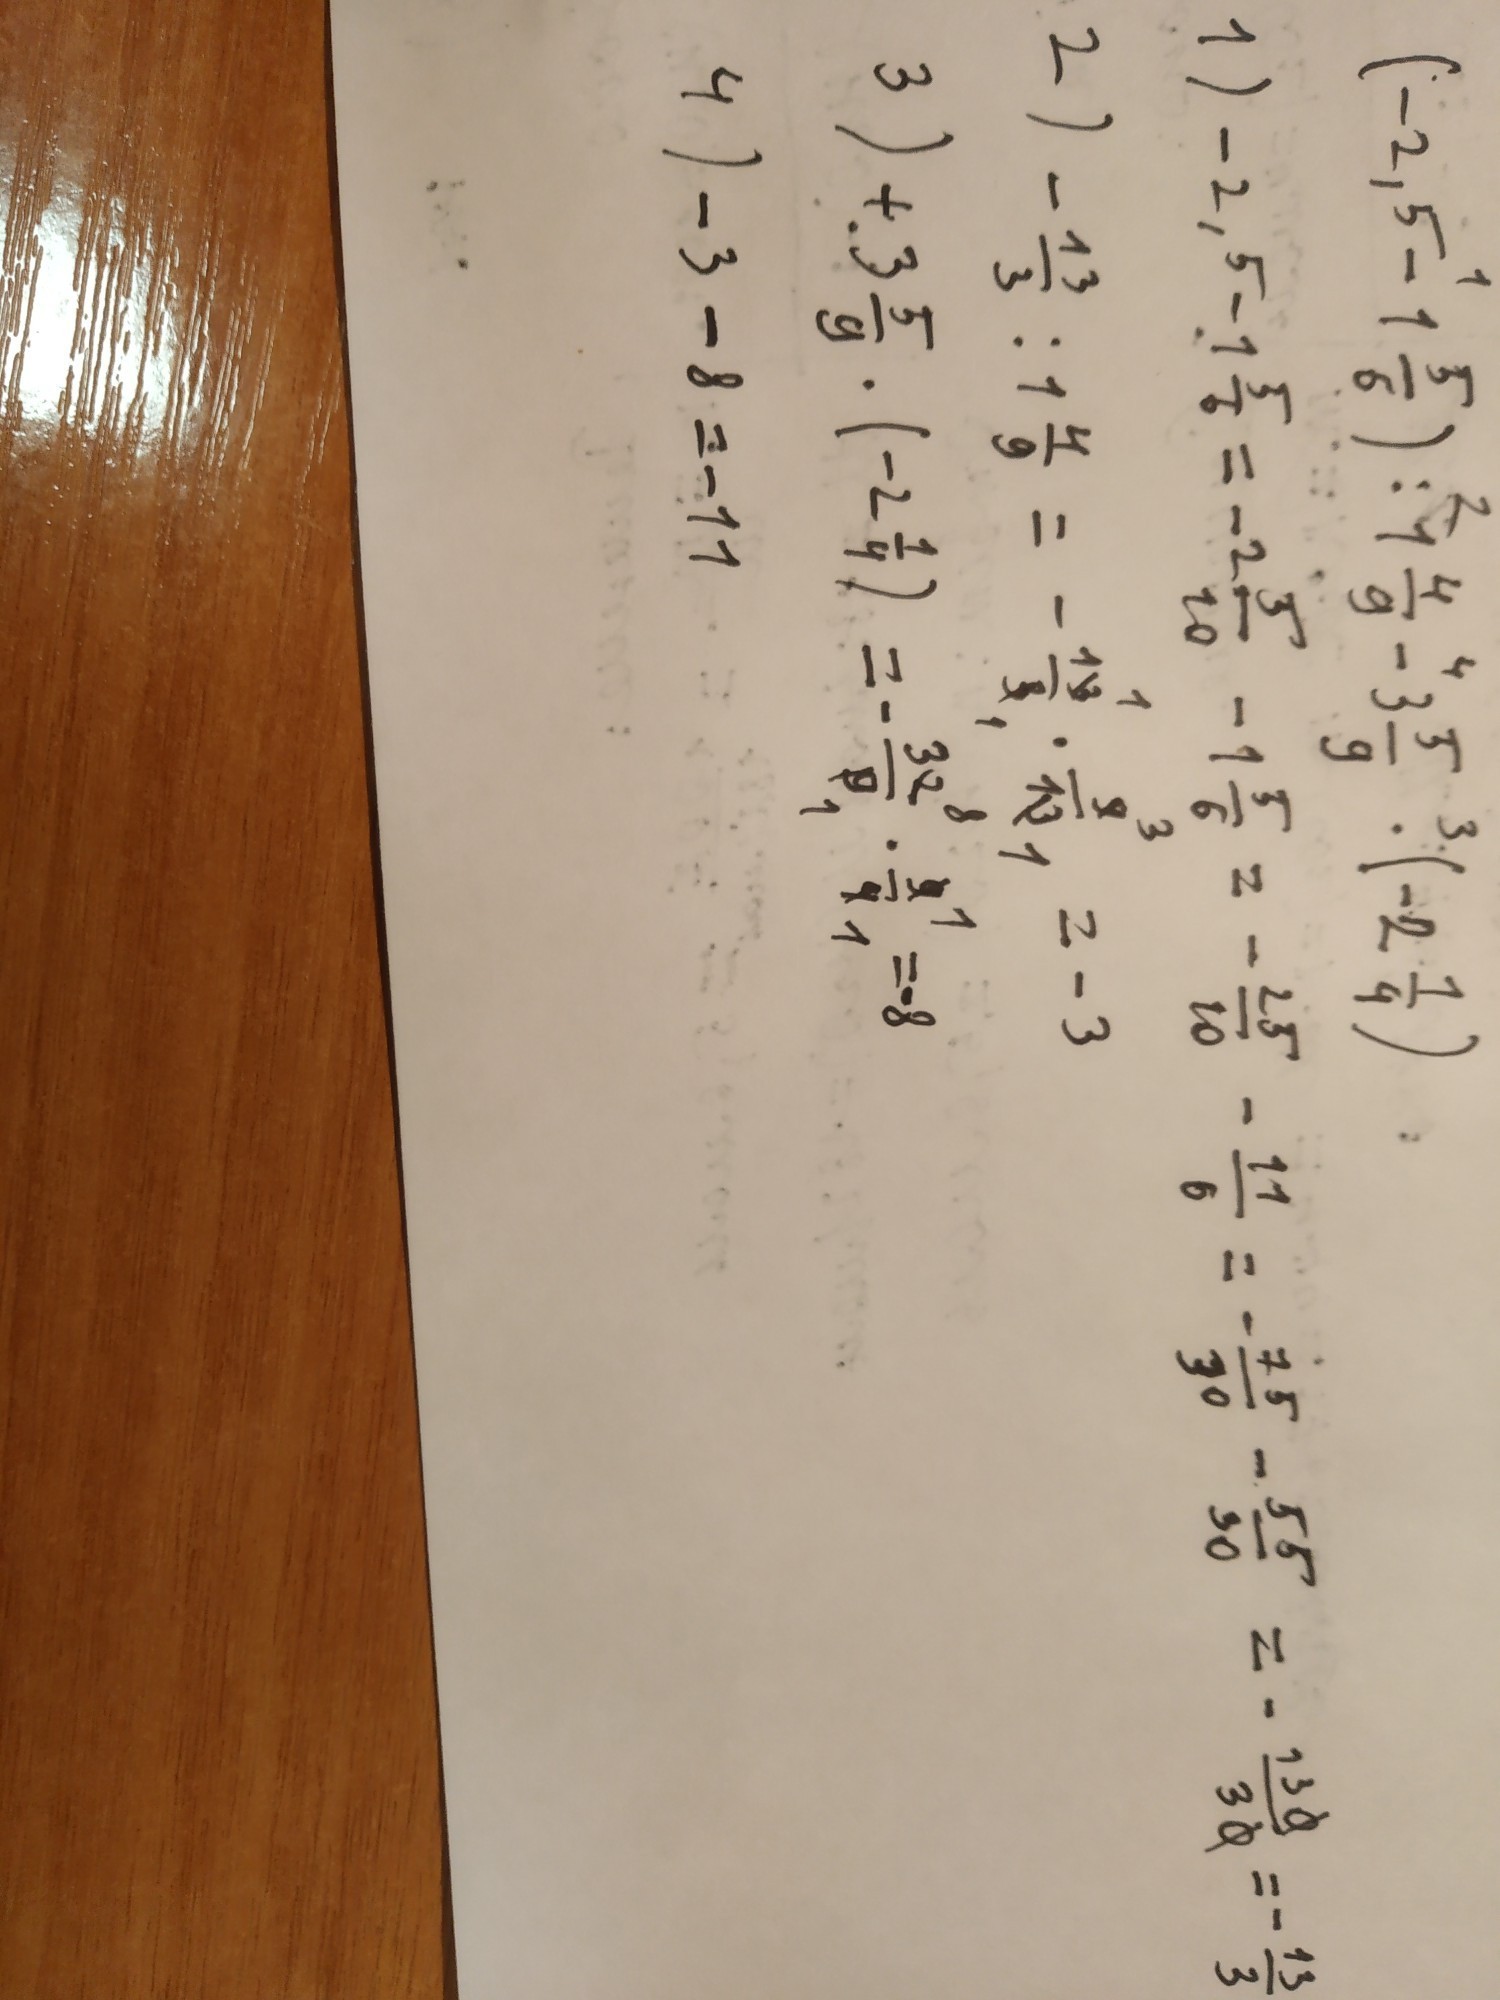 (-2,5 -¹ 1 5/6) :² 1 4/9 -⁴ 3 5/9 ·³ (-2 1/4)
1) -2,5 - 1 5/6 = -2 5/10 - 1 5/6 = - 25/10 - 11/6 = - 75/30 - 55/30 = - 130/30 = - 13/3
2) - 13/3 : 1 4/9 = - 13/3 · 9/13 = -3
3) + 3 5/9 · (-2 1/4) = - 32/9 · 9/4 = -8
4) -3 - 8 = -11